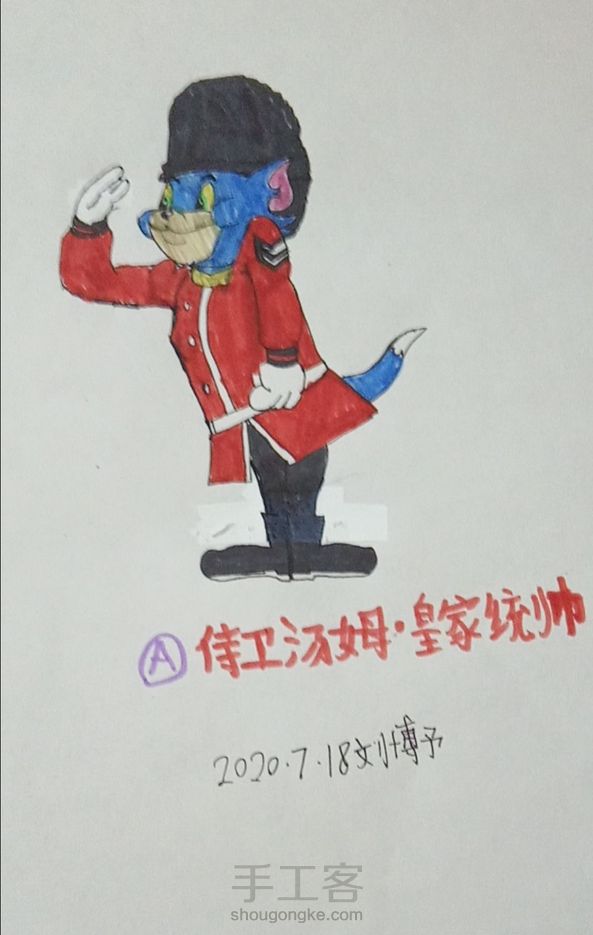 A 侍卫汤姆·皇家统帅
2020.7.18刘博予
手工客
shougongke.com